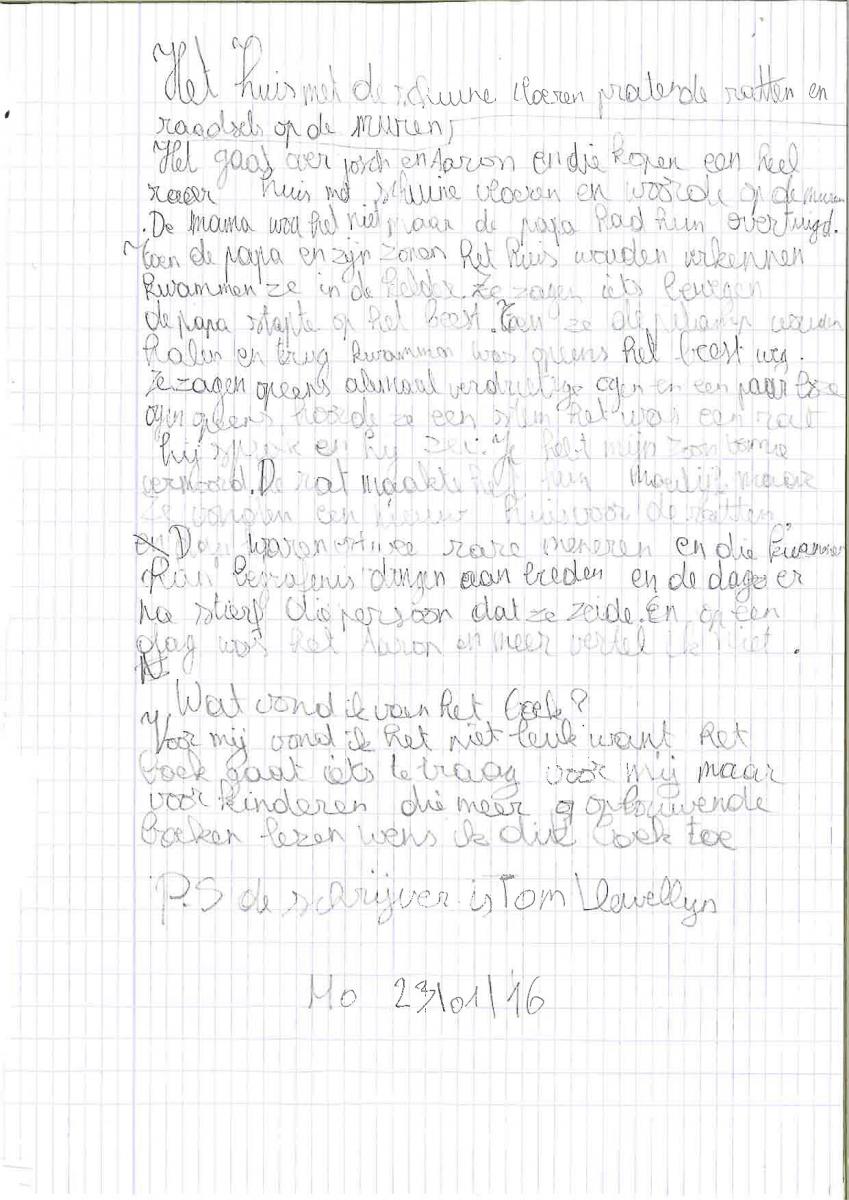 Het huis met de schuine vloeren pratende ratten en
raadsels op de muren,
Het gaat over josch en Aaron en die kopen een heel
raar huis met schuine vloeren en woorde op de muren
. De mama wou het niet maar de papa had hun overtuigd.
Toen de papa en zijn zonen het huis wouden verkennen
kwammen ze in de kelder. Ze zagen iets bewegen
de papa stapte op het beest. Toen ze de wouden
halen en trug kwammen was opeens het beest weg.
Ze zagen opeens alemaal verdrietige ogen en een paar boze
ogen opeens hoorde ze een stem het was een rat
hij sprak en hij zei: Je hebt mijn zoon
vermoord. De rat maakte het hun moeilijk maar
ze vonden een nieuw huis voor de ratten.
Dan waren er twee rare meneren en die kwammen
hun begrafenis dingen aan bieden en de dage er
na stierf die persoon dat ze zeide. En op een
dag was het Aaron en meer vertel ik niet.
Wat vond ik van het boek?
Voor mij vond ik het niet leuk want het
boek gaat iets te traag voor mij maar
voor kinderen die meer opbouwende
boeken lezen wens ik dit boek toe
P.S de schrijver is Tom Llewellyn
Mo 23/01/16